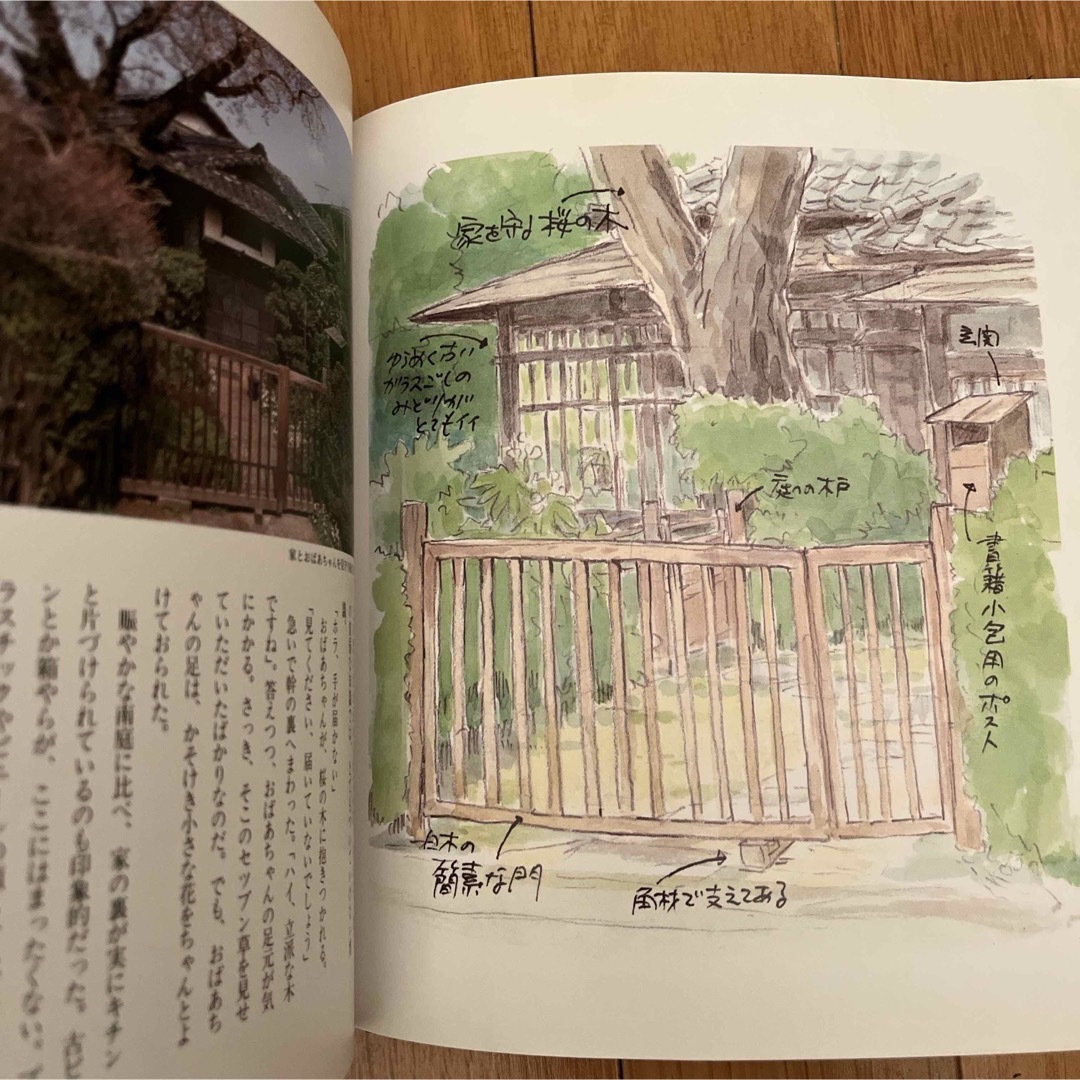 家を守る桜の木
ゆらめく古い
ガラスごしの
みどりが
とてもイイ
玄関
庭への木戸
書籍小包用のポスト
白木の
簡素な門
角材で支えてある
家とおばあちゃんを見守
「ホラ、手が届かない」
おばあちゃんが、桜の木に抱きつかれる。
「見てください、届いていないでしょう」
急いで幹の裏へまわった。「ハイ、立派な木
ですね」。答えつつ、おばあちゃんの足元が気
にかかる。さっき、そこのセツブン草を見せ
ていただいたばかりなのだ。でも、おばあち
ゃんの足は、かそけき小さな花をちゃんとよ
けておられた。
賑やかな南庭に比べ、家の裏が実にキチン
と片づけられているのも印象的だった。古ビ
ンとか箱やらが、ここにはまったくない。プ
ラスチックやビニールの